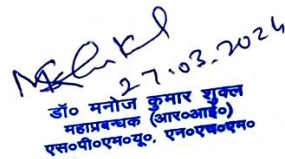 27.03.2024
डॉ० मनोज कुमार शुक्ल
महाप्रबन्धक (आर०आई०)
एस०पी०एम०यू०, एन०एच०एम०